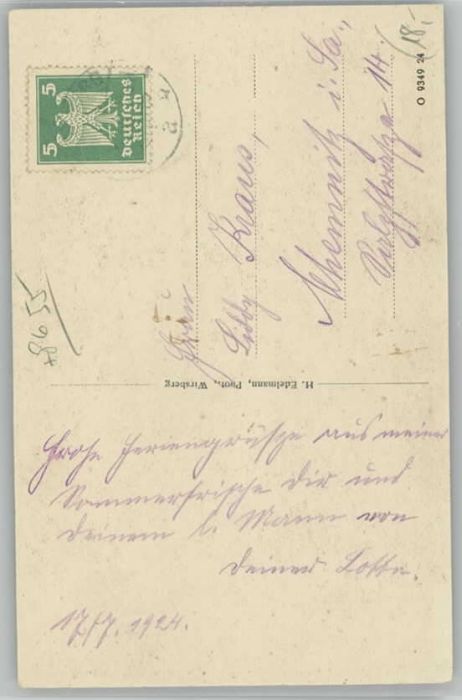 5 5
Deutsches
Reich
18,-
O 9349 24
Frau
Liddy Kraus,
Chemnitz i. Sa.,
14.
+8655
H. Edelmann, Phot., Wirsberg
Frohe Feriengrüsse aus meiner
Sommerfrische Dir und
Deinem l. Mann von
Deiner Lotte.
17/7. 1924.